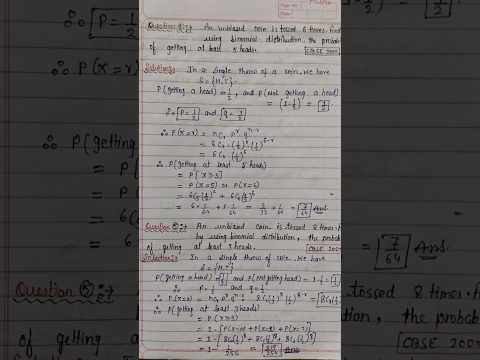 Question 4:→ An unbiased coin is tossed 6 times. Find
using binomial distribution, the probab
of getting at least 5 heads. [CBSE 200
Solution:→ In a single throw of a coin, we have
S = {H, T}
P(getting a head) = 1/2, and P(not getting a head)
= (1 - 1/2) = 1/2
∴ P = 1/2 and q = 1/2
∴ P(X=r) = nCr p^r q^n-r
= 6Cr (1/2)^r (1/2)^6-r
= 6Cr (1/2)^6
∴ P(getting at least 5 heads)
= P(X≥5)
= P(X=5) or P(X=6)
= 6C5(1/2)^6 + 6C6(1/2)^6
= 6×1/64 + 1×1/64 = 3/32 + 1/64 = 7/64 Ans
Question 5:→ An unbiased coin is tossed 8 times.
by using binomial distribution, the probab
of getting at least 3 heads. CBSE 200
Solution:→ In a single throw of coin, we have
S = {H,T}
P(getting a head) = 1/2 and P(not getting head) = 1-1/2 = 1/2
∴ P = 1/2 and q = 1/2
∴ P(X=r) = nCr p^r q^n-r 8Cr (1/2)^r (1/2)^8-r = 8Cr
∴ P(getting at least 3 heads)
= P(X≥3)
= 1-[P(X=0) + P(X=1) + P(X=2)]
= 1-[8C0(1/2)^8 + 8C1(1/2)^8 + 8C2(1/2)^8]
= 1-37/256 = 219/256 Ans
∴ P = 1/2
∴ P(X=r)
∴ P(getting
= P(
= P(
= 6C
= 6
Question 5:→
of getting
= 7/64 Ans.
tossed 8 times.
CBSE 200